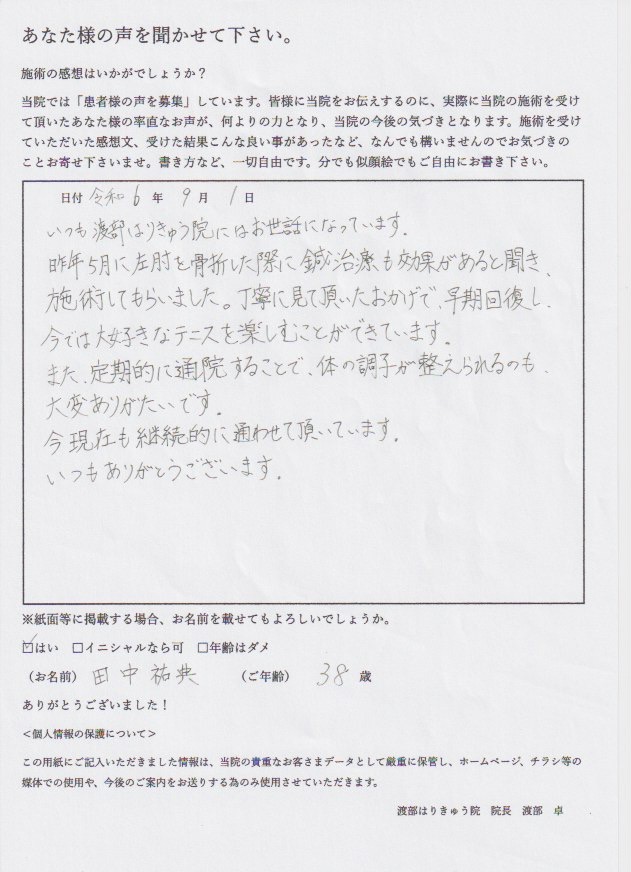 あなた様の声を聞かせて下さい。
施術の感想はいかがでしょうか？
当院では「患者様の声を募集」しています。皆様に当院をお伝えするのに、実際に当院の施術を受け
て頂いたあなた様の率直なお声が、何よりの力となり、当院の今後の気づきとなります。施術を受け
ていただいた感想文、受けた結果こんな良い事があったなど、なんでも構いませんのでお気づきの
ことお寄せ下さいませ。書き方など、一切自由です。分でも似顔絵でもご自由にお書き下さい。
日付 令和 6 年 9 月 1 日
いつも渡部はりきゅう院にはお世話になっています。
昨年5月に左肘を骨折した際に鍼治療も効果があると聞き、
施術してもらいました。丁寧に見て頂いたおかげで、早期回復し、
今では大好きなテニスを楽しむことができています。
また、定期的に通院することで、体の調子が整えられるのも、
大変ありがたいです。
今現在も継続的に通わせて頂いています。
いつもありがとうございます。
※紙面等に掲載する場合、お名前を載せてもよろしいでしょうか。
☑はい □イニシャルなら可 □年齢はダメ
（お名前） 田中祐典 （ご年齢） 38 歳
ありがとうございました！
<個人情報の保護について>
この用紙にご記入いただきました情報は、当院の貴重なお客さまデータとして厳重に保管し、ホームページ、チラシ等の
媒体での使用や、今後のご案内をお送りする為のみ使用させていただきます。
渡部はりきゅう院 院長 渡部 卓